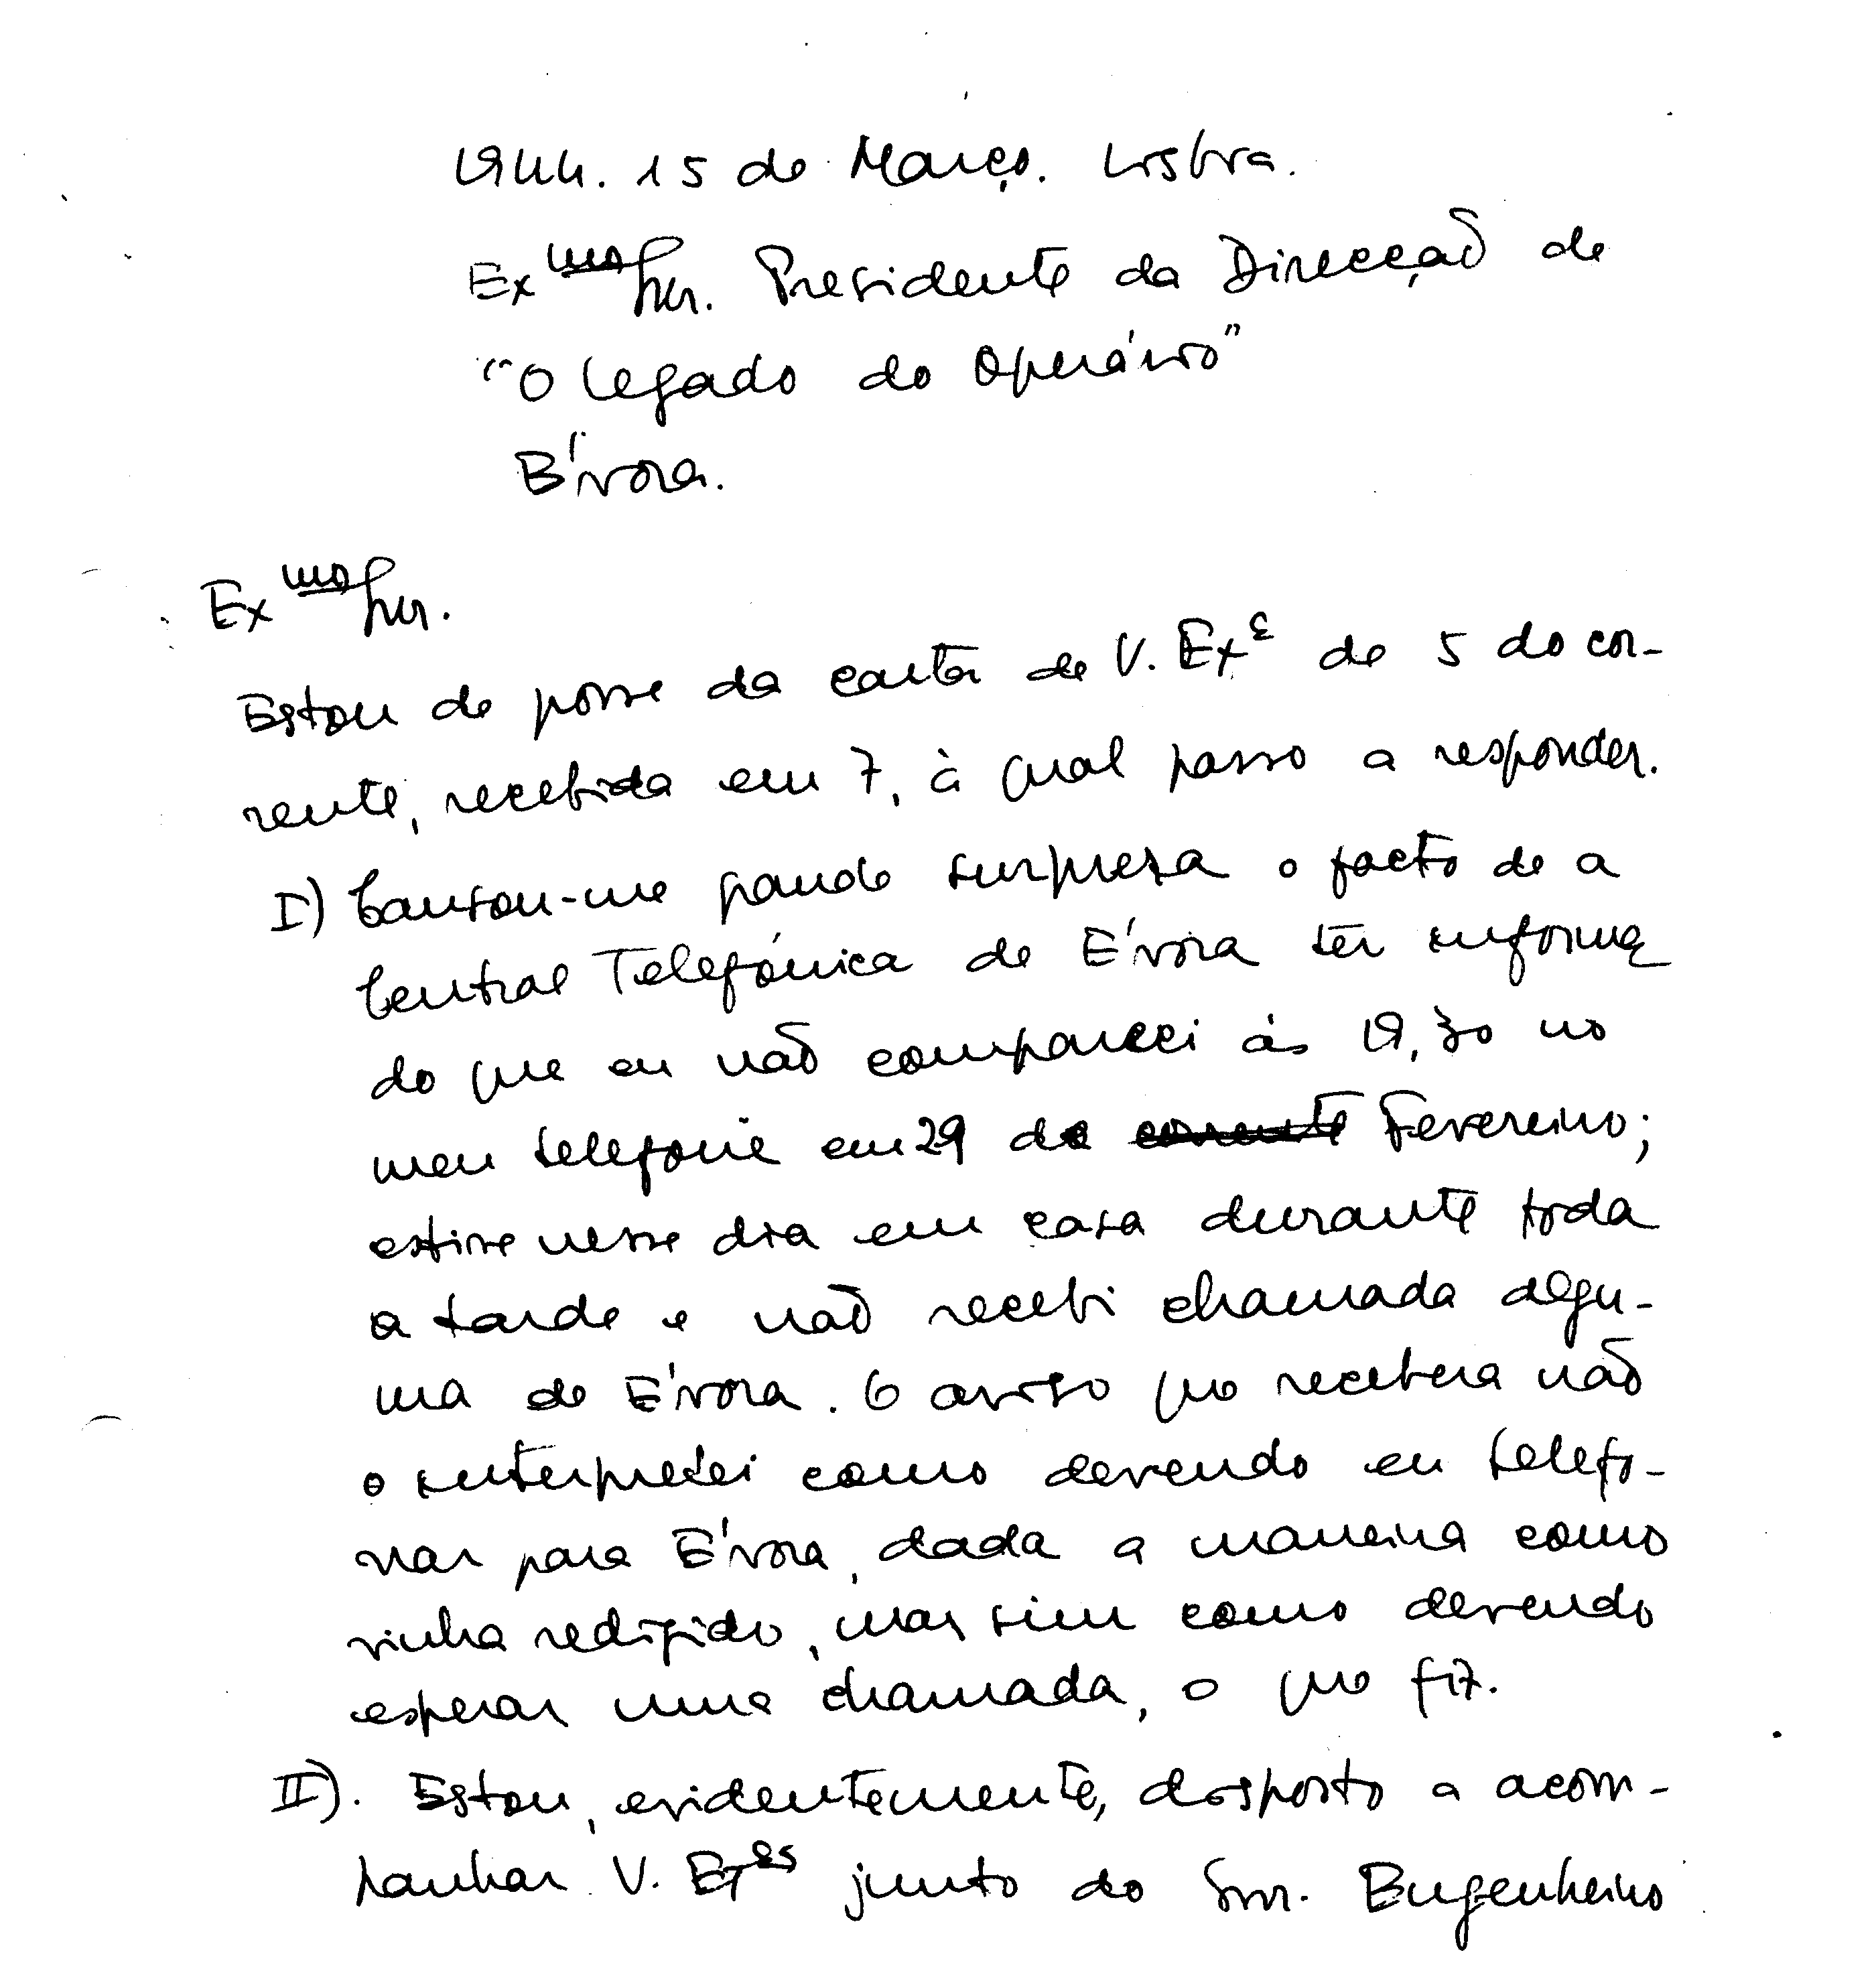 1944. 15 de Março. Lisboa.
Ex^mo Snr. Presidente da Direcção de
"O Legado do Operário"
Évora.
Ex^mo Snr.
Estou de posse da carta de V. Ex^a de 5 do cor-
rente, recebida em 7, à qual passo a responder.
I) Causou-me grande surpresa o facto de a
Central Telefónica de Évora ter informa
do que eu não compareci às 19,30 no
meu telefone em 29 de corrente Fevereiro;
estive nesse dia em casa durante toda
a tarde e não recebi chamada algu-
ma de Évora. O aviso que recebera não
o interpretei como devendo eu telefo-
nar para Évora, dada a maneira como
vinha redigido, mas sim como devendo
esperar uma chamada, o que fiz.
II). Estou, evidentemente, disposto a acom-
panhar V. Ex^as junto do Snr. Engenheiro